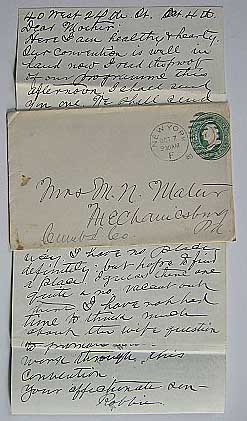 40 West 24th St. Oct 4th
Dear Mother:
Here I am healthy & hearty.
Our Convention is well in
hand now I read the proof
of our programme this
afternoon. I shall send
you one. We shall send
NEW YORK
OCT 7
930AM
F
Mrs M. N. Mateer
Mechanicsburg
Cumb'd Co. Pa
way I have no place
definitely but hope to find
a place. I guess there are
quite a no. vacant out
there I have not had
time to think much
about the wife question
convention
Your affectionate son
Robbie